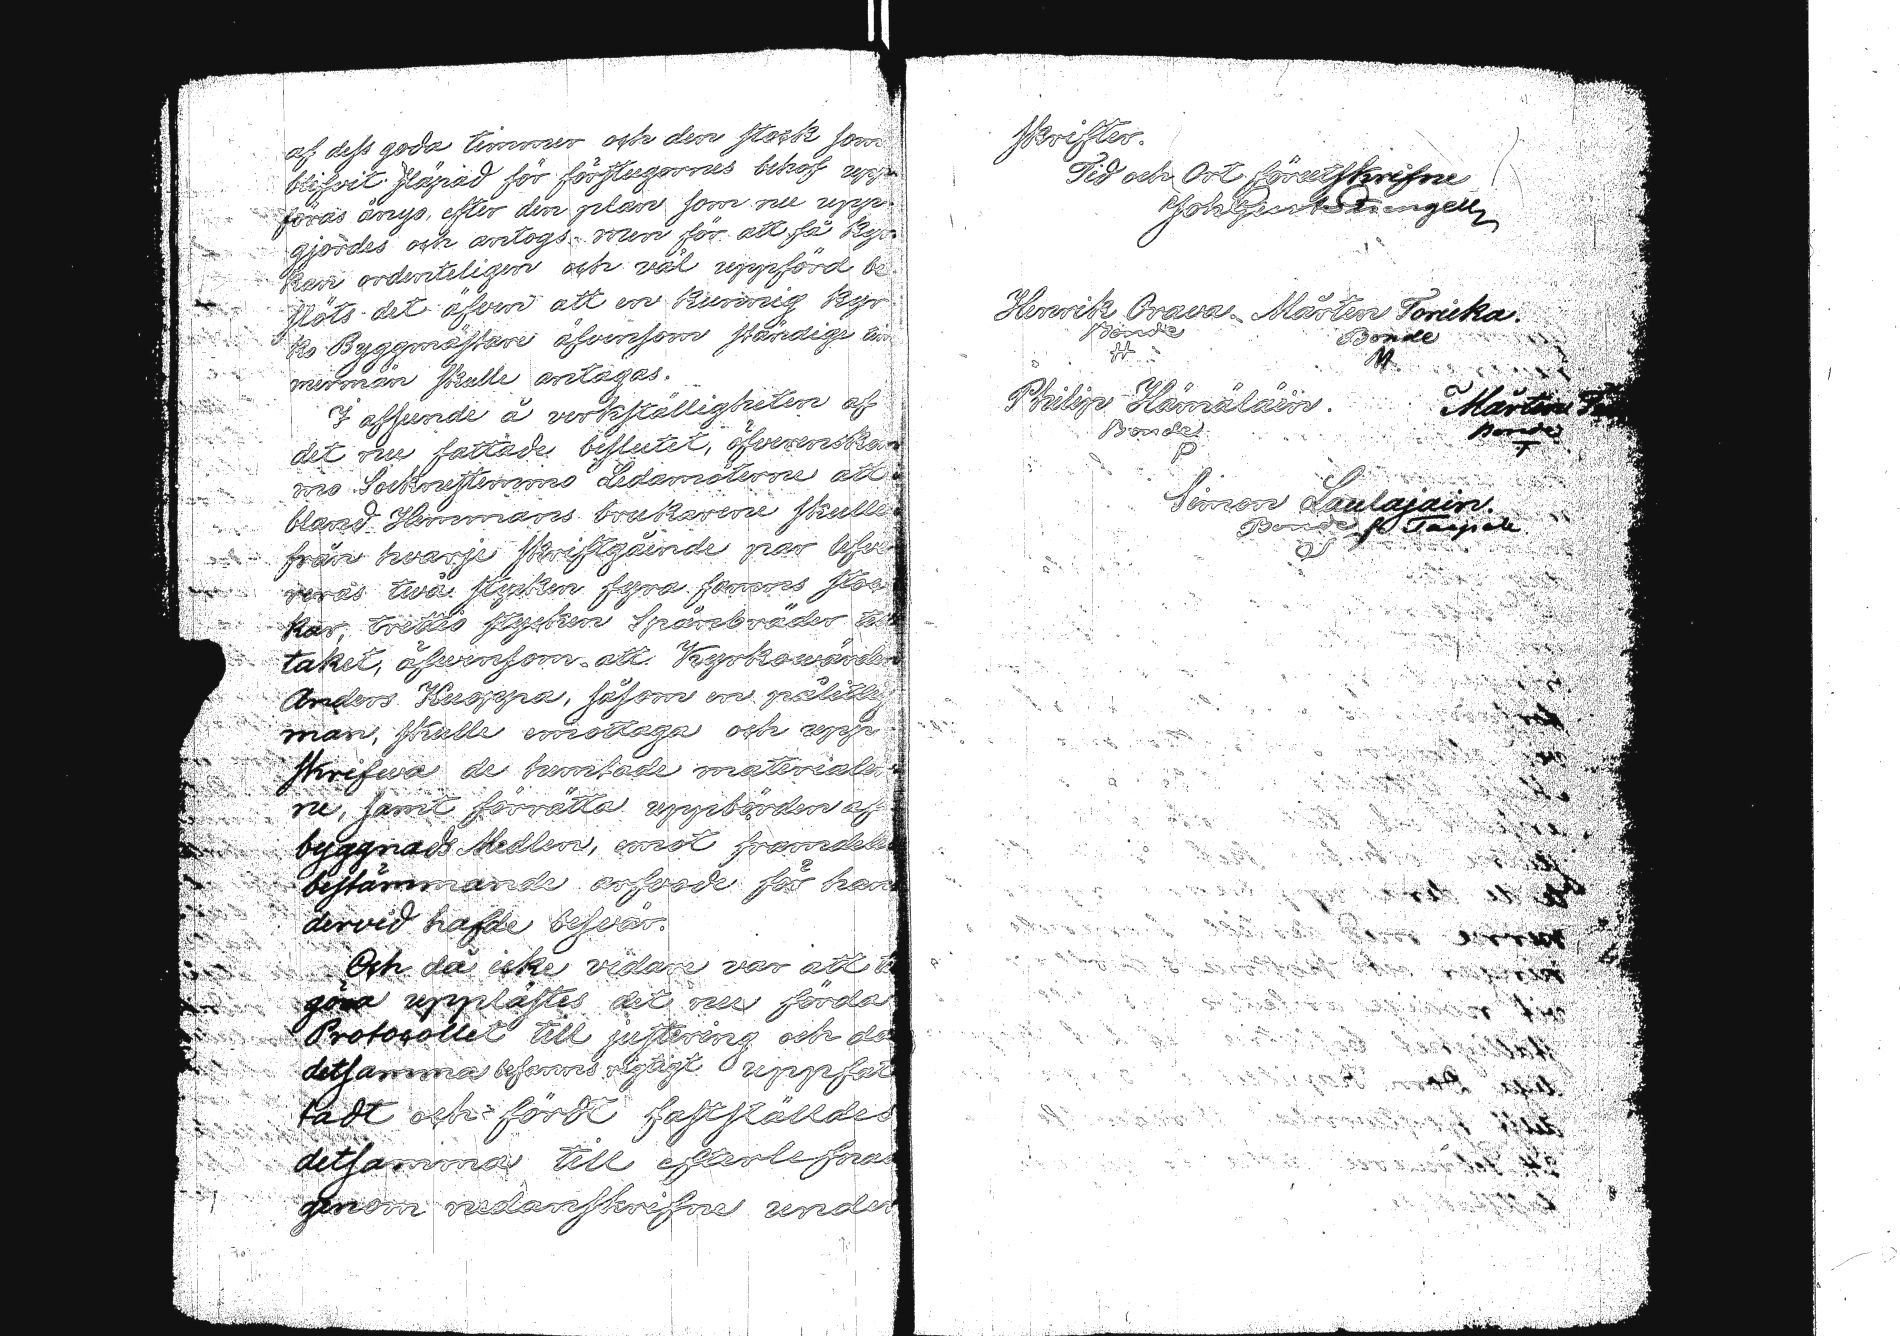 af dess goda timmer och den stock som
blifvit släpad för förstugornes behof upp-
föras ånyo, efter den plan som nu upp-
gjordes och antogs. men för att få Kyr-
kan ordenteligen och väl uppförd be-
slöts det äfven att en kunnig Kyr
ko Byggmästare äfvensom ständige tim
mermän skulle antagas.
I afseende å verkställigheten af
det nu fattade beslutet, öfverenskom
mo Socknestemmo Ledamöterne att
bland Hemmans brukarene skulle
från hvarje skriftgående par lefve
reras två stycken fyra famns stoc
kar, trettio stycken Spånbräder till
taket, äfvensom att Kyrkowärden
Anders Kuoppa, såsom en pålitlig
man, skulle emottaga och upp
skrifwa de hemtade materialer
ne, samt förrätta uppbörden af
byggnads Medlen, emot framdeles
bestämmande arfvode för han
dervid hafde besvär.
Och då icke vidare var att till
göra upplästes det nu förda
Protocollet till justering och då
detsamma befanns rigtigt uppfat
tadt och fördt fastställdes
detsamma till efterlefnad
genom nedanskrifne under
skrifter.
Tid och Ort förutskrifne
Joh Gust
Henrik Orava. Mårten Torikka.
Bonde Bonde
Philip Hämäläin. Mårten
Bonde Bonde
Simon Laulajain.
Bonde fr Taipale